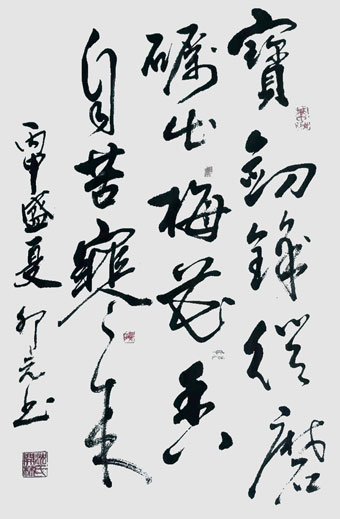 寶劍鋒從磨
礪出梅花香
自苦寒來
丙申盛夏